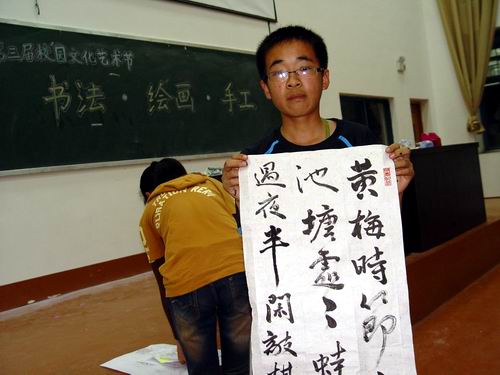 第三届校园文化艺术节
书法·绘画·手工
黄梅時節
池塘處々蛙
過夜半閑敲棋